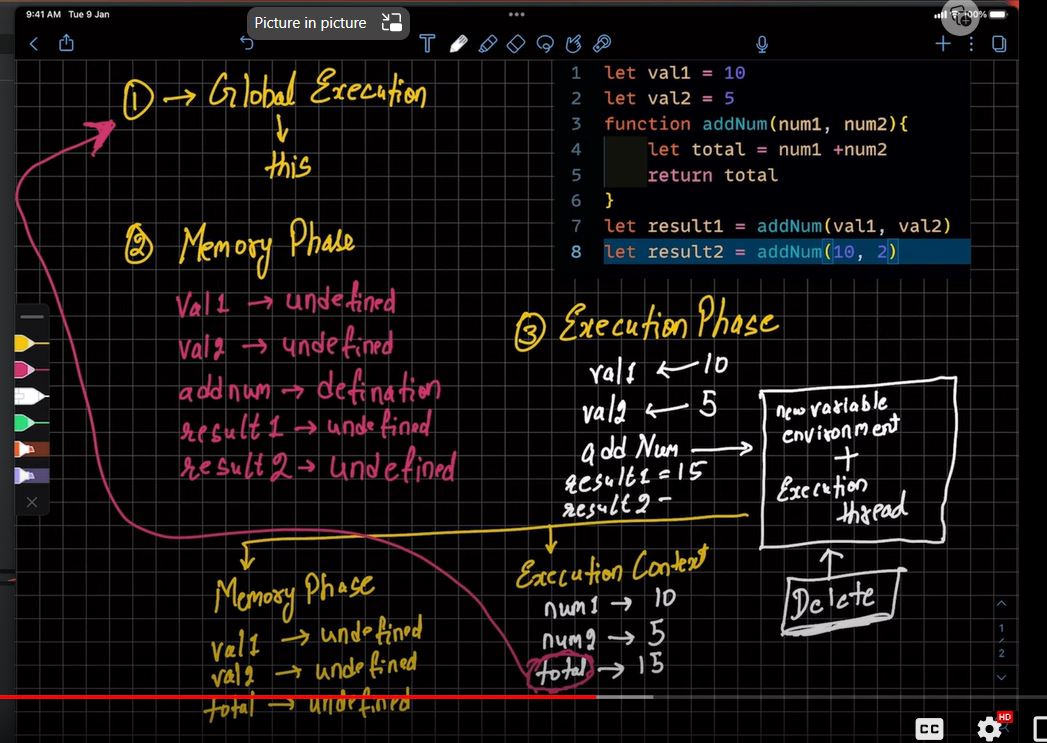 9:41 AM Tue 9 Jan
Picture in picture
100%
① → Global Execution
↓
this
② Memory Phase
Val1 → undefined
val2 → undefined
addnum → defination
result1 → undefined
result2 → undefined
1 let val1 = 10
2 let val2 = 5
3 function addNum(num1, num2){
4 let total = num1 +num2
5 return total
6 }
7 let result1 = addNum(val1, val2)
8 let result2 = addNum(10, 2)
③ Execution Phase
val1 ← 10
val2 ← 5
add Num →
result1 = 15
result2 -
new variable
environment
+
Execution
thread
Delete
Memory Phase
val1 → undefined
val2 → undefined
total → undefined
Execution Context
num1 → 10
num2 → 5
total → 15
1
2
CC
HD